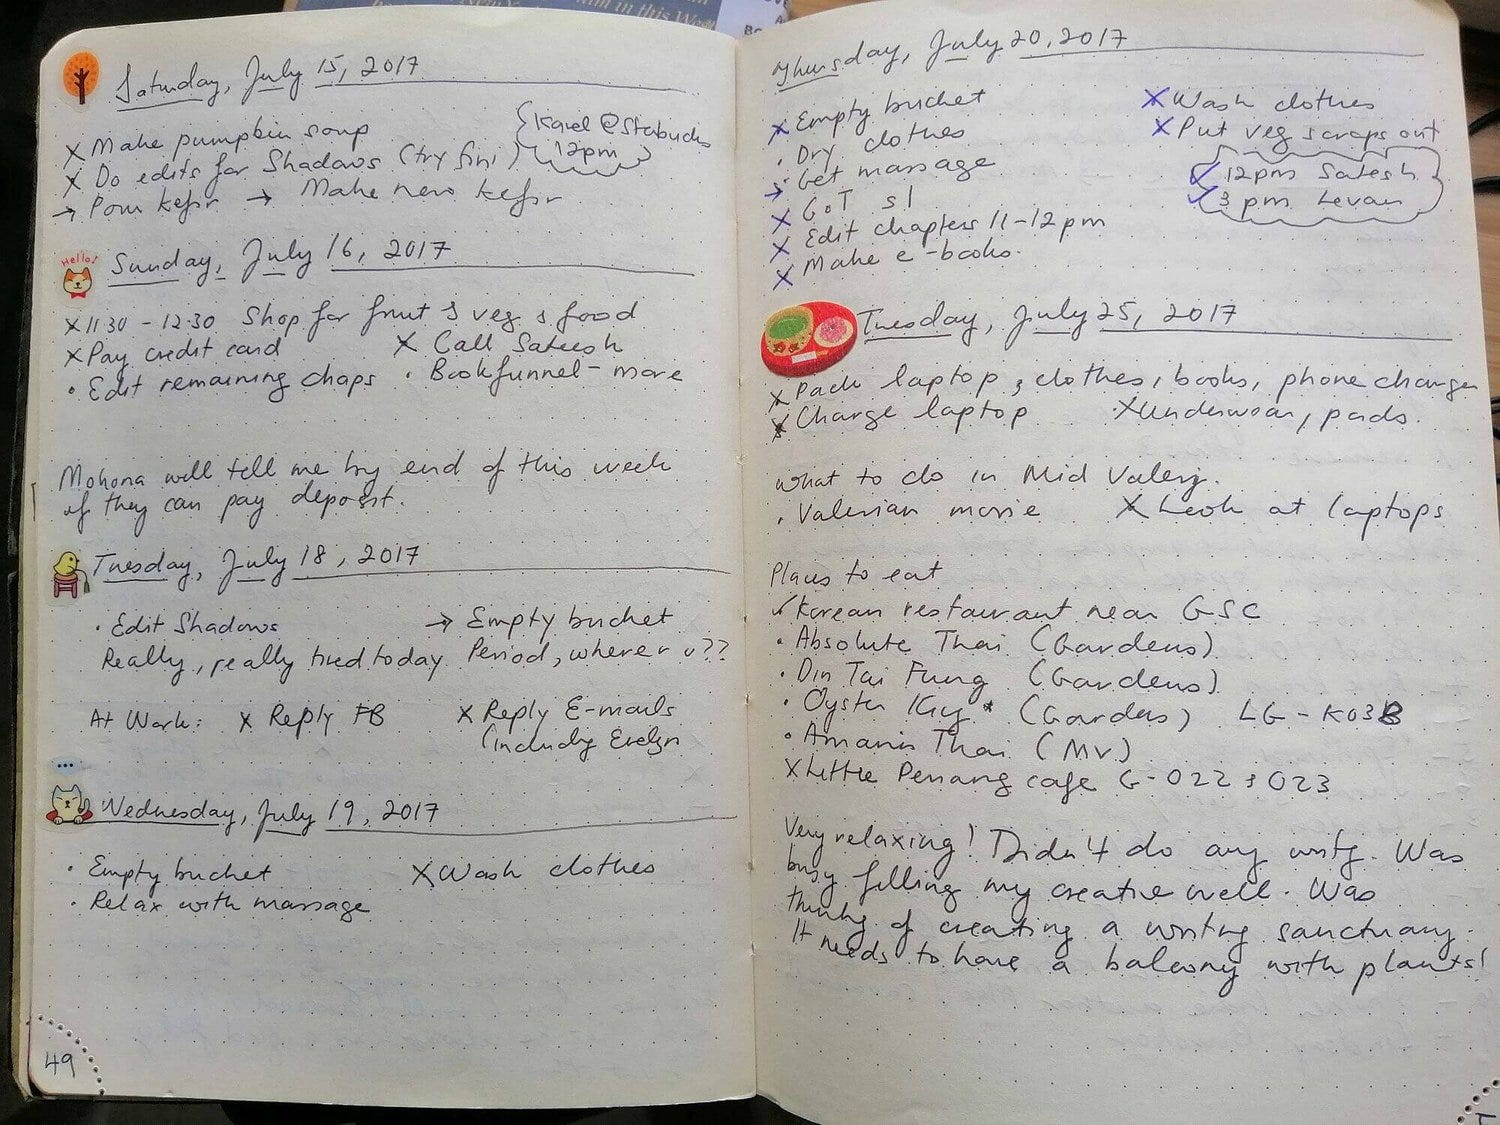 Saturday, July 15, 2017
x Make pumpkin soup
x Do edits for Shadows (try fini)
→ Pour kefir → Make new kefir
@ Starbucks
12pm
Hello!
Sunday, July 16, 2017
x 11 30 - 12.30 Shop for fruit & veg & food
x Pay credit card x Call Sateesh
• Edit remaining chaps • Bookfunnel - more
Mohona will tell me by end of this week
if they can pay deposit.
Tuesday, July 18, 2017
• Edit Shadows → Empty bucket
Really, really tired today. Period, where r u??
At Work: x Reply FB x Reply E-mails
(including Evelyn
...
Wednesday, July 19, 2017
• Empty bucket x Wash clothes
• Relax with massage
49
Thursday, July 20, 2017
x Empty bucket
• Dry clothes
• Get massage
→ GoT s1
x Edit chapters 11-12 pm
x Make e-books.
x
x Wash clothes
x Put veg scraps out
✓ 12pm Satesh
✓ 3 pm Levan
Tuesday, July 25, 2017
x Pack laptop, clothes, books, phone charger
x Charge laptop x Underwear, pads.
What to do in Mid Valley.
• Valerian movie x Look at laptops
Places to eat
✓ Korean restaurant near GSC
• Absolute Thai (Gardens)
• Din Tai Fung (Gardens)
• Oyster King * (Gardens) LG-K03B
• Amarin Thai (MV)
x Little Penang cafe G-022 & 023
Very relaxing! Didn't do any writg. Was
busy filling my creative well. Was
thinking of creating a writing sanctuary.
It needs to have a balcony with plants!